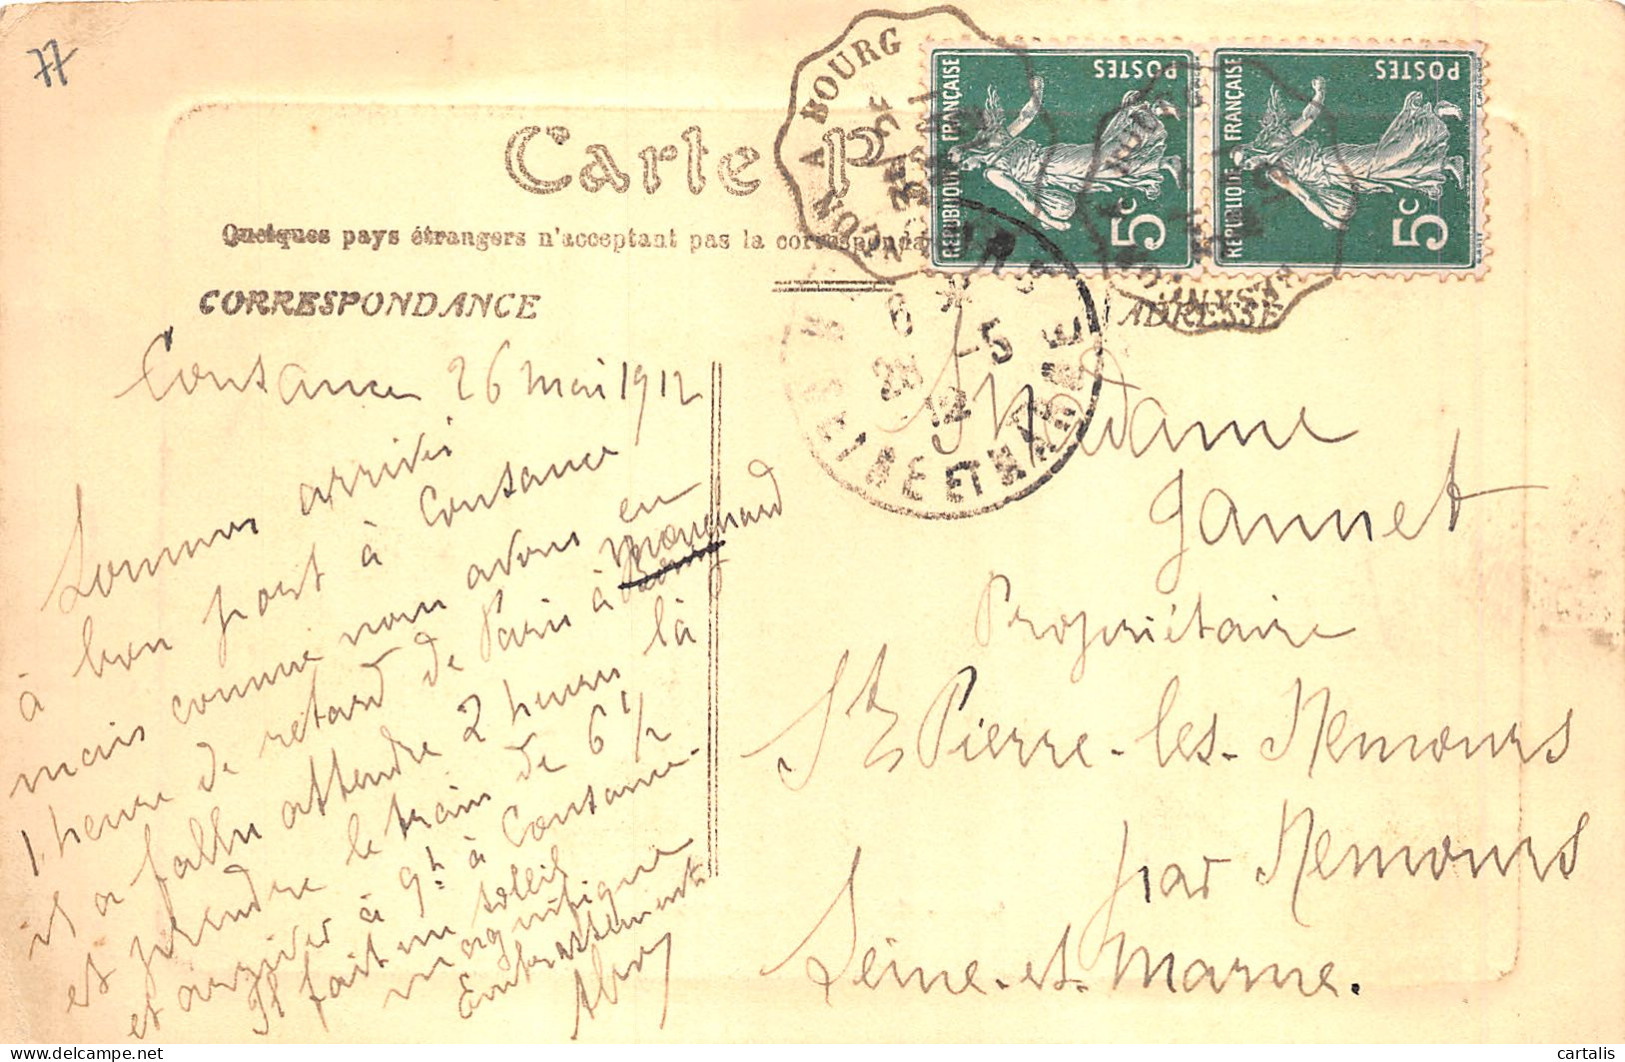 77
Carte P
Quelques pays étrangers n'acceptent pas la corresponda
CORRESPONDANCE
ADRESSE
A BOURG
RÉPUBLIQUE FRANÇAISE
POSTES
5c
RÉPUBLIQUE FRANÇAISE
POSTES
5c
6 *
28 -5
12
SEINE ET MARNE
Constance 26 mai 1912
Sommes arrivés
à bon port à Constance
mais comme nous avons eu
1 heure de retard de Paris à Mouchard
il a fallu attendre 2 heures là
et prendre le train de 6 1/2
et arriver à 9h à Constance.
Il fait un soleil
magnifique
Embrassements
Madame
Jannet
Propriétaire
St Pierre-les-Nemours
par Nemours
Seine-et-Marne.
cartalis
delcampe.net